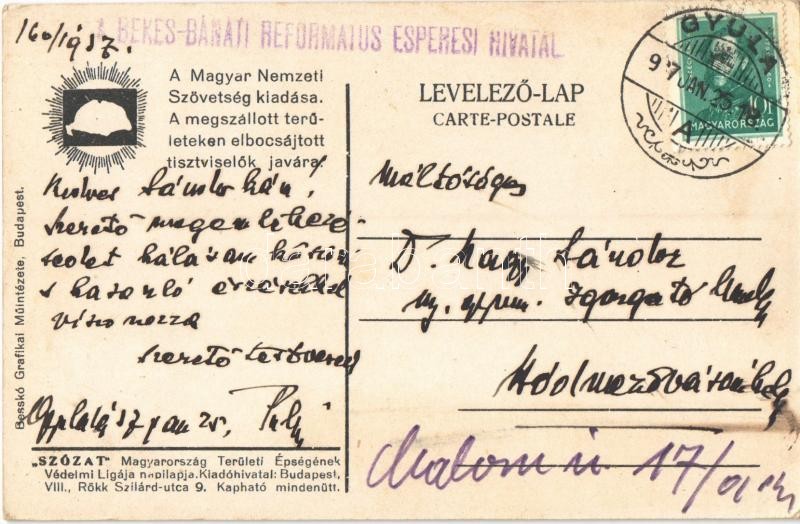 160/1937.
A BÉKÉS-BÁNÁTI REFORMÁTUS ESPERESI HIVATAL
GYULA
937 JAN 25
A
MAGYARORSZÁG
A Magyar Nemzeti
Szövetség kiadása.
A megszállott terü-
leteken elbocsájtott
tisztviselők javára.
LEVELEZŐ-LAP
CARTE-POSTALE
Kedves Sándor bátyám!
Szerető megemlékezé-
sedet hálásan köszöni
s hasonló érzésekkel
viszonozza
szerető testvéred
Gyula 1937 jan 25.
Méltóságos
Dr. Nagy Sándor
ny. gymn. igazgató Úrnak
Hódmezővásárhely
Malom u 17
Besskó Grafikai Műintézete, Budapest.
„SZÓZAT" Magyarország Területi Épségének
Védelmi Ligája napilapja. Kiadóhivatal: Budapest,
VIII., Rökk Szilárd-utca 9. Kapható mindenütt.